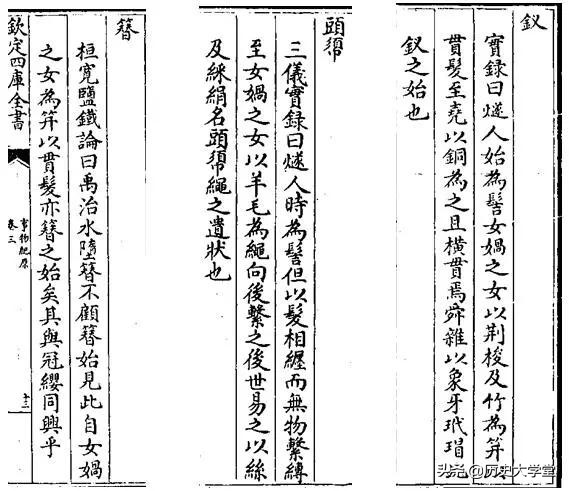 釵
實録曰燧人始為髻女媧之女以荆梭及竹為笄以
貫髮至堯以銅為之且橫貫焉舜雜以象牙玳瑁
釵之始也
頭𢄼
三儀實録曰燧人時為髻但以髮相纏而無物繫縛
至女媧之女以羊毛為繩向後繫之後世易之以絲
及綵絹名頭𢄼繩之遺狀也
簪
桓寛鹽鐵論曰禹治水墮簪不顧簪始見此自女媧
之女為笄以貫髮亦簪之始矣其與冠纓同興乎
欽定四庫全書
事物紀原
卷三
十三
头条@历史大学堂